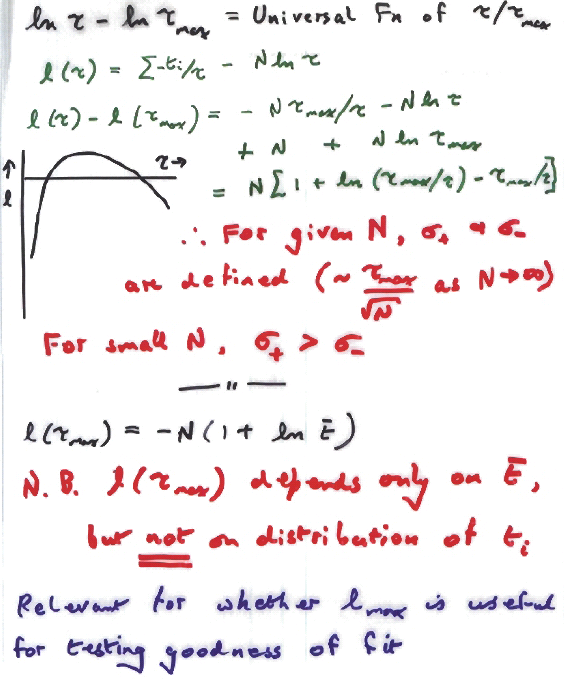 ln τ - ln τmax = Universal Fn of τ/τmax
l(τ) = Σ-ti/τ - N ln τ
l(τ) - l(τmax) = - N τmax/τ - N ln τ
+ N + N ln τmax
= N[1 + ln (τmax/τ) - τmax/τ]
τ→
↑
l
∴ For given N, σ+ & σ-
are defined (~ τmax/√N as N→∞)
For small N, σ+ > σ-
— " —
l(τmax) = -N(1 + ln t̄)
N.B. l(τmax) depends only on t̄,
but not on distribution of ti
Relevant for whether lmax is useful
for testing goodness of fit